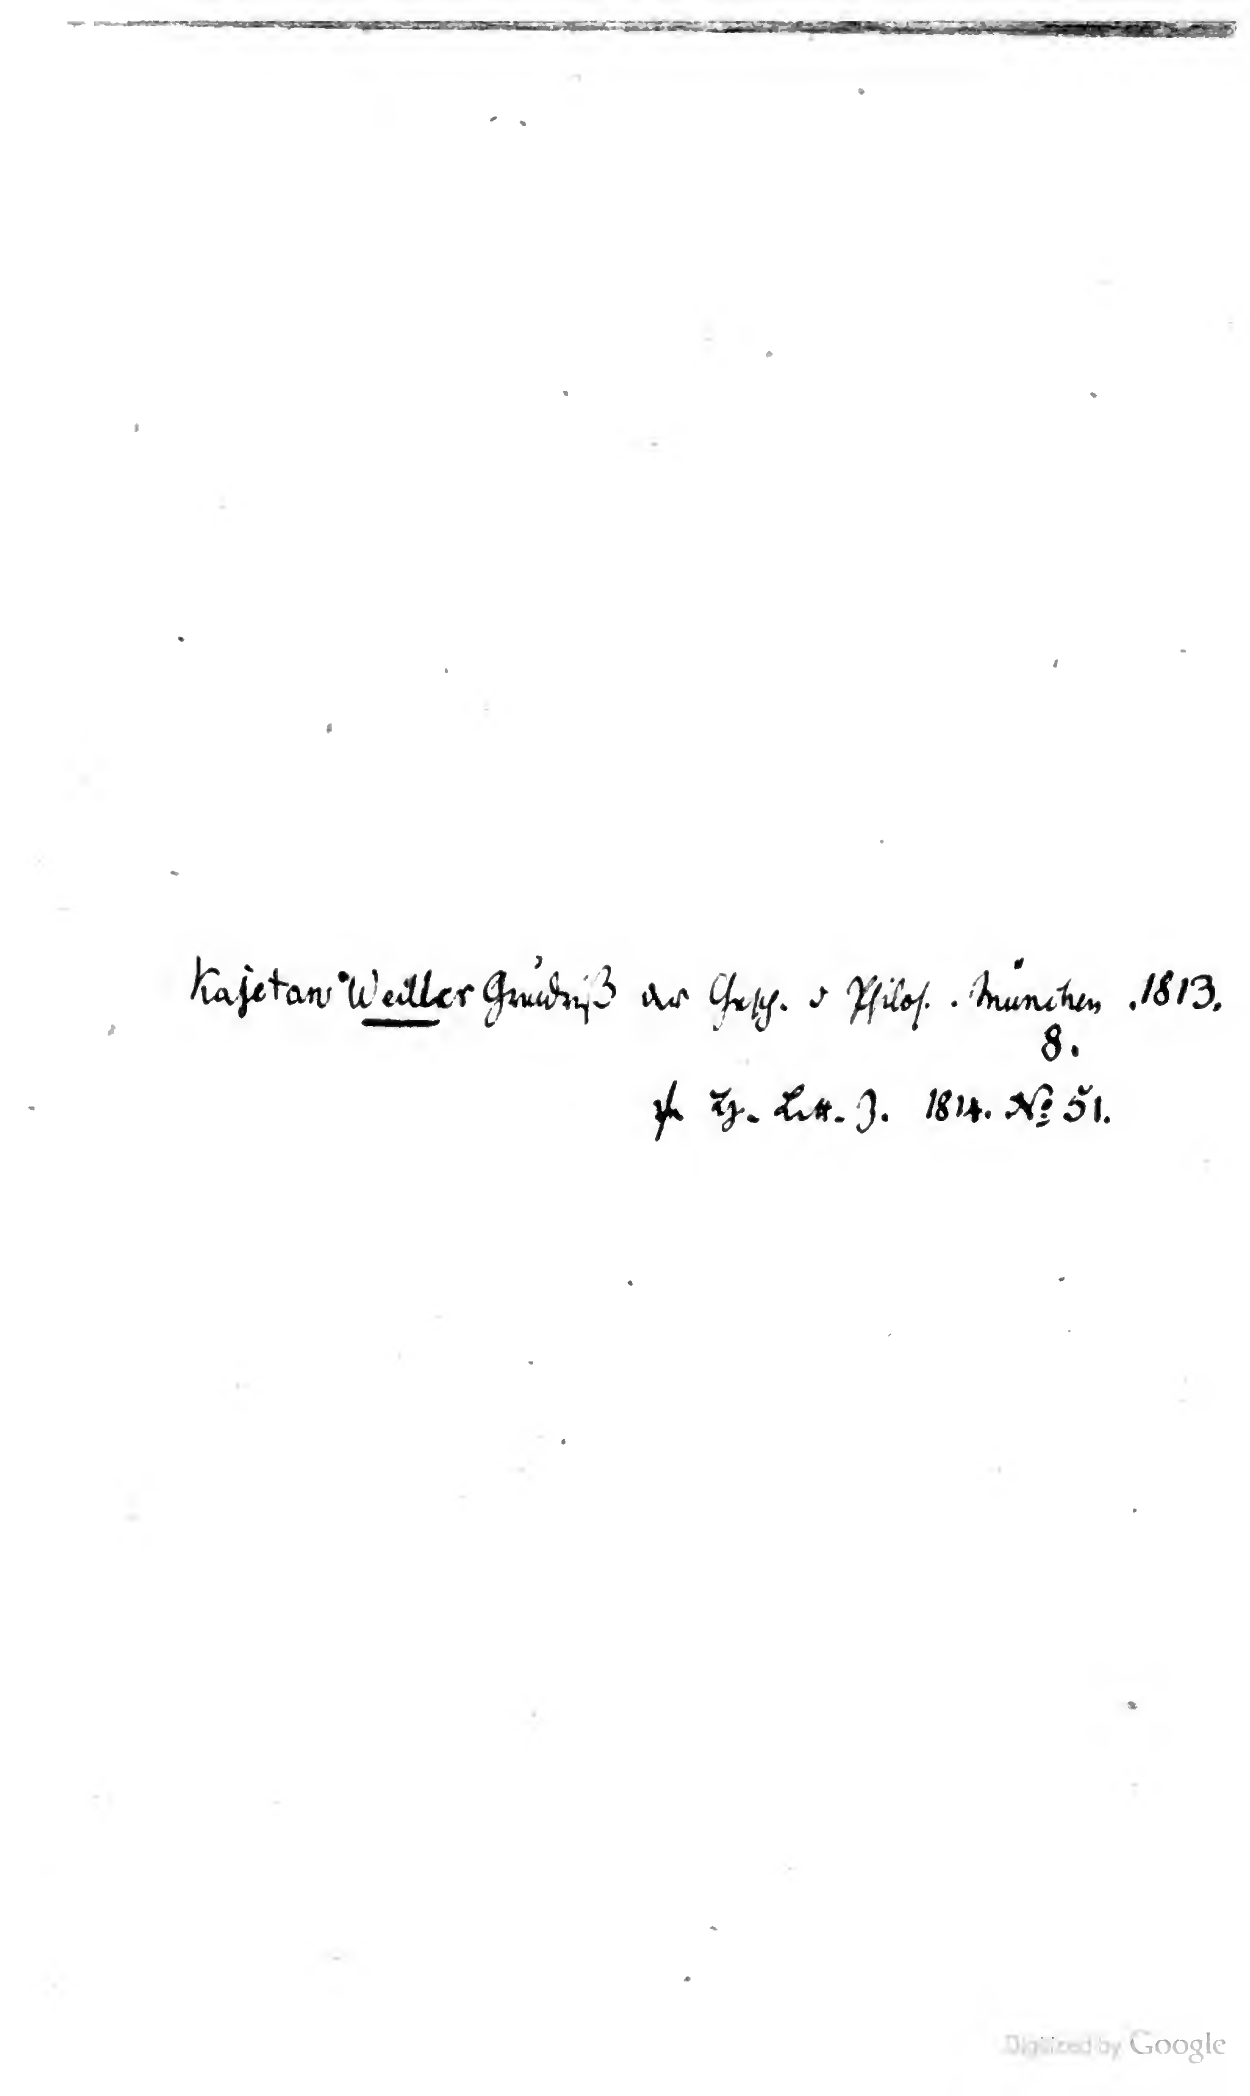 Kajetan Weiller Grundriß der Gesch. d Philos. München .1813.
8.
Lpz. Litt. Z. 1814. No 51.
Digitized by Google